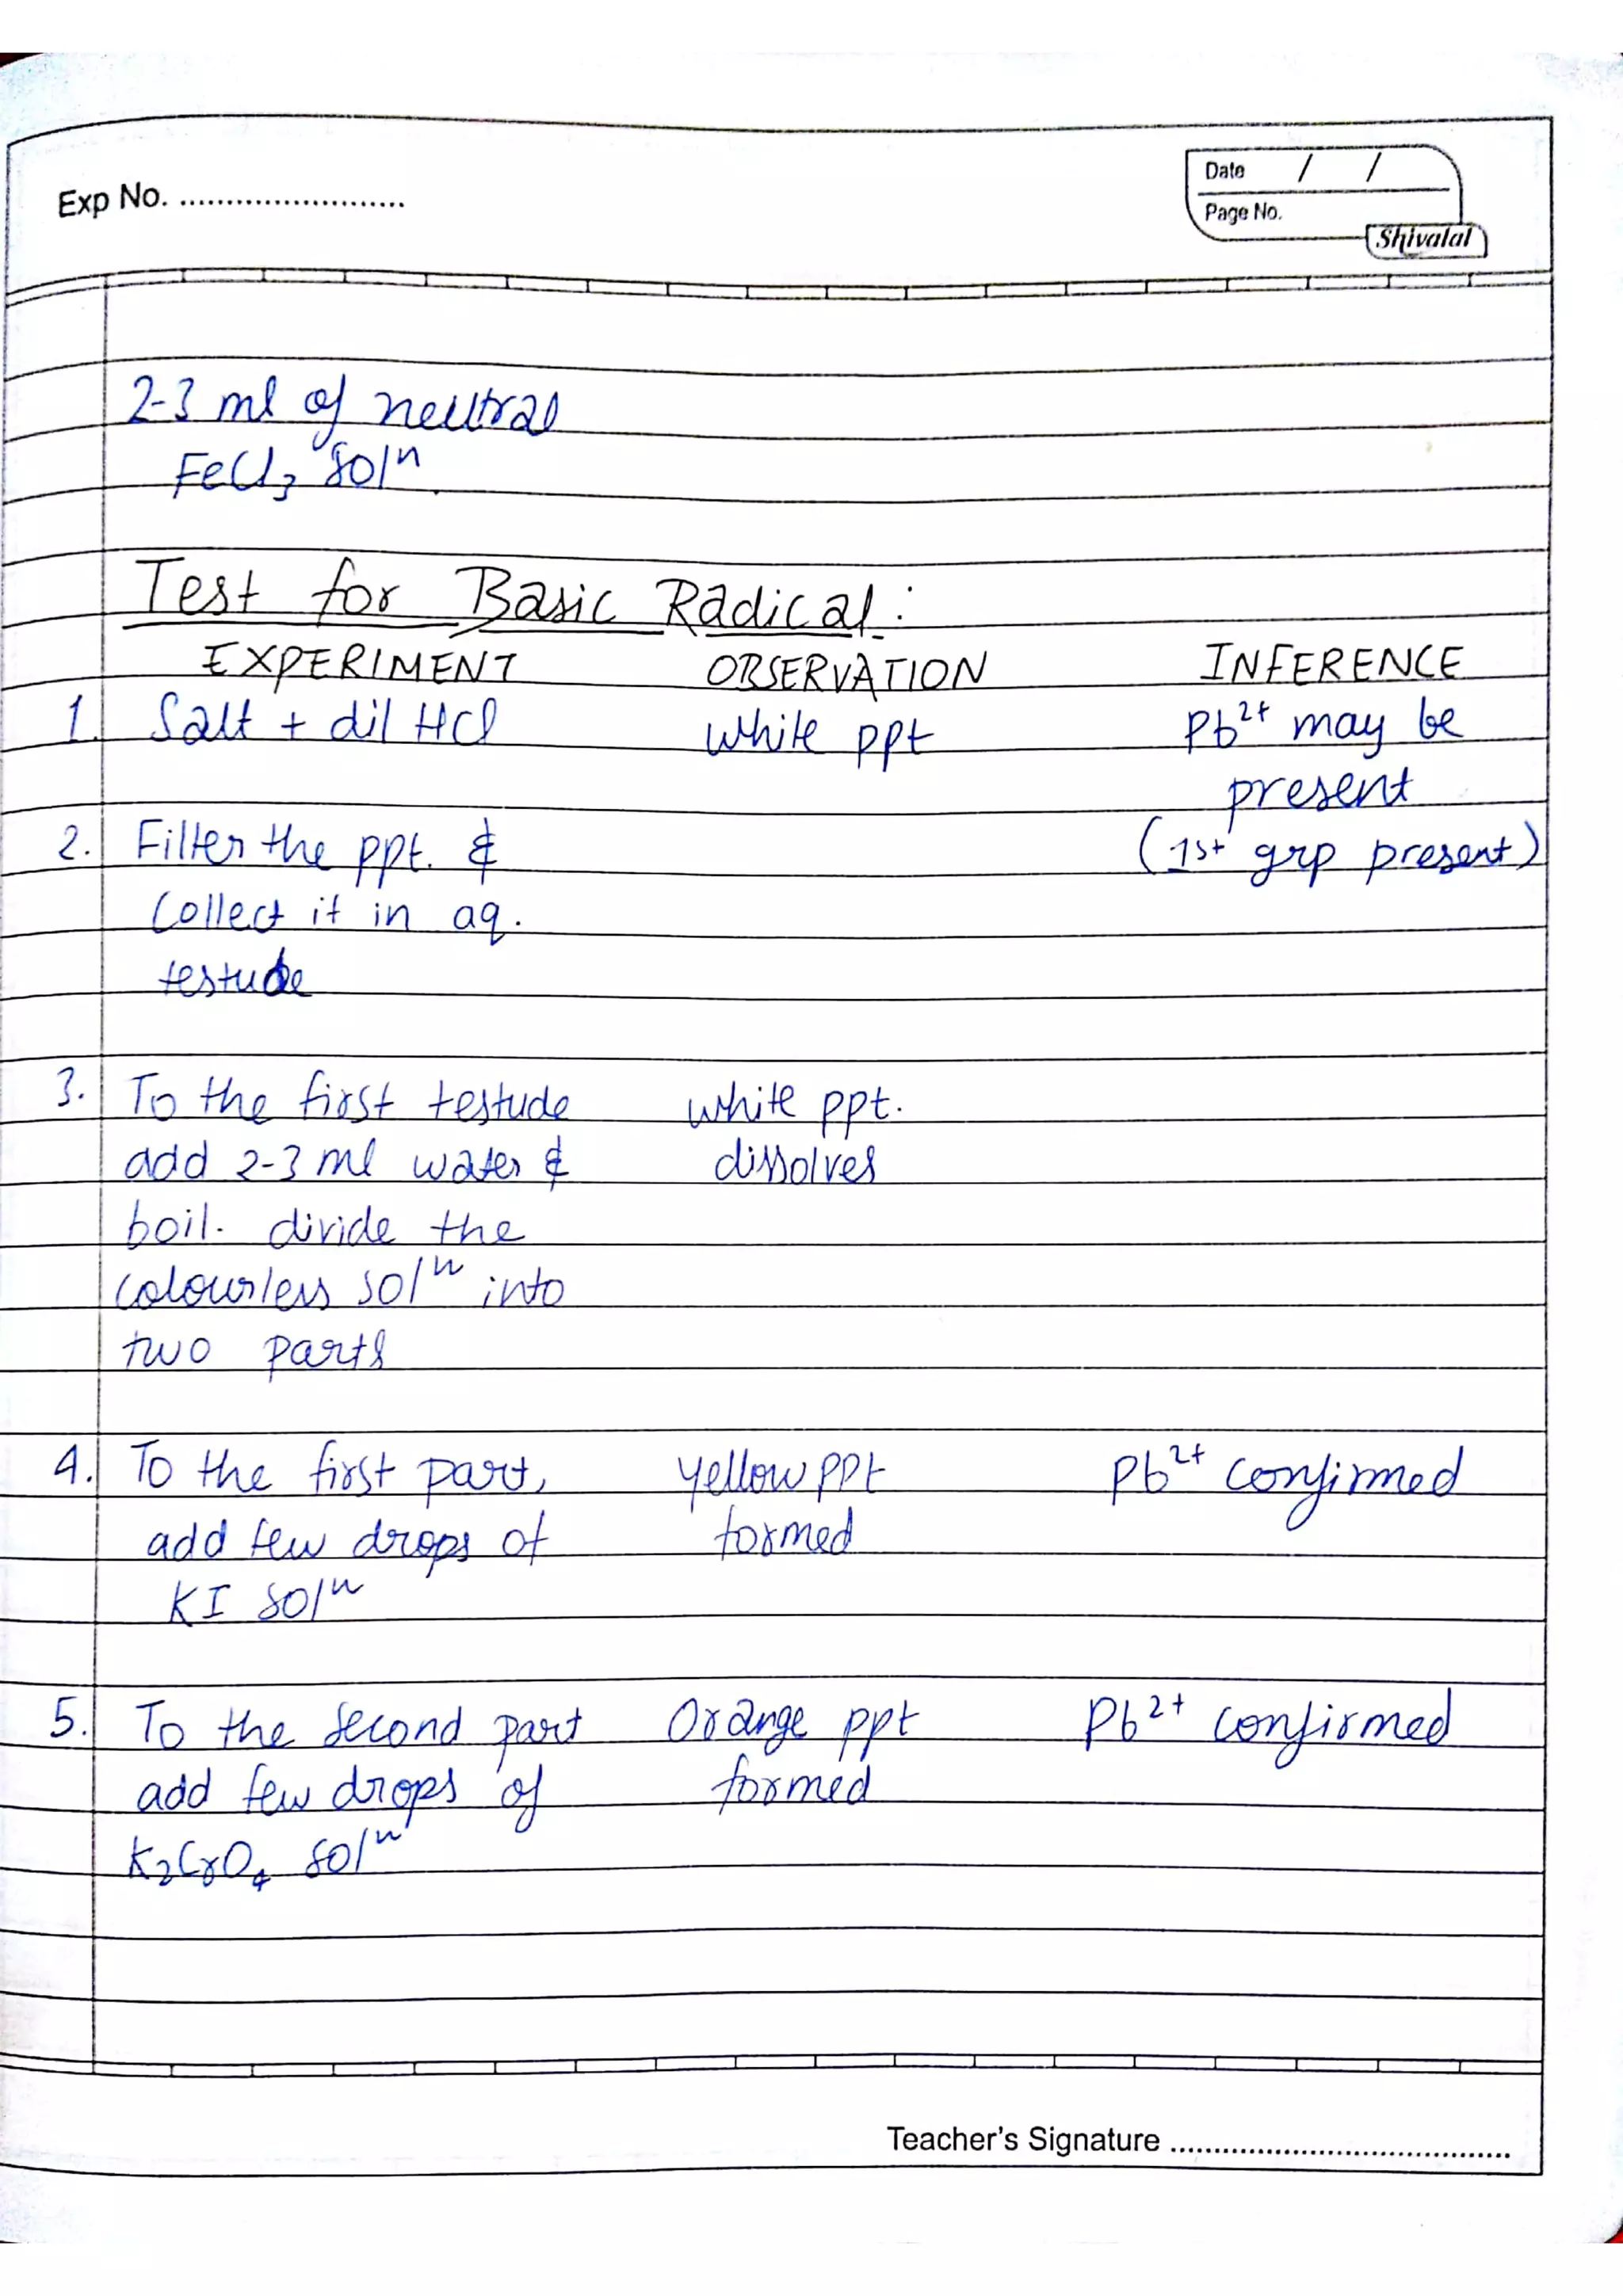 Exp No. ........................
Date / /
Page No.
Shivalal
2-3 ml of neutral
FeCl₃ solⁿ
Test for Basic Radical:
EXPERIMENT OBSERVATION INFERENCE
1. Salt + dil HCl white ppt Pb²⁺ may be
present
2. Filter the ppt. & (1st grp present)
Collect it in aq.
testude
3. To the first testude white ppt.
add 2-3 ml water & dissolves
boil. divide the
colourless solⁿ into
two parts
4. To the first part, yellow ppt Pb²⁺ confirmed
add few drops of formed
KI solⁿ
5. To the second part Orange ppt Pb²⁺ confirmed
add few drops of formed
K₂CrO₄ solⁿ
Teacher's Signature ........................................